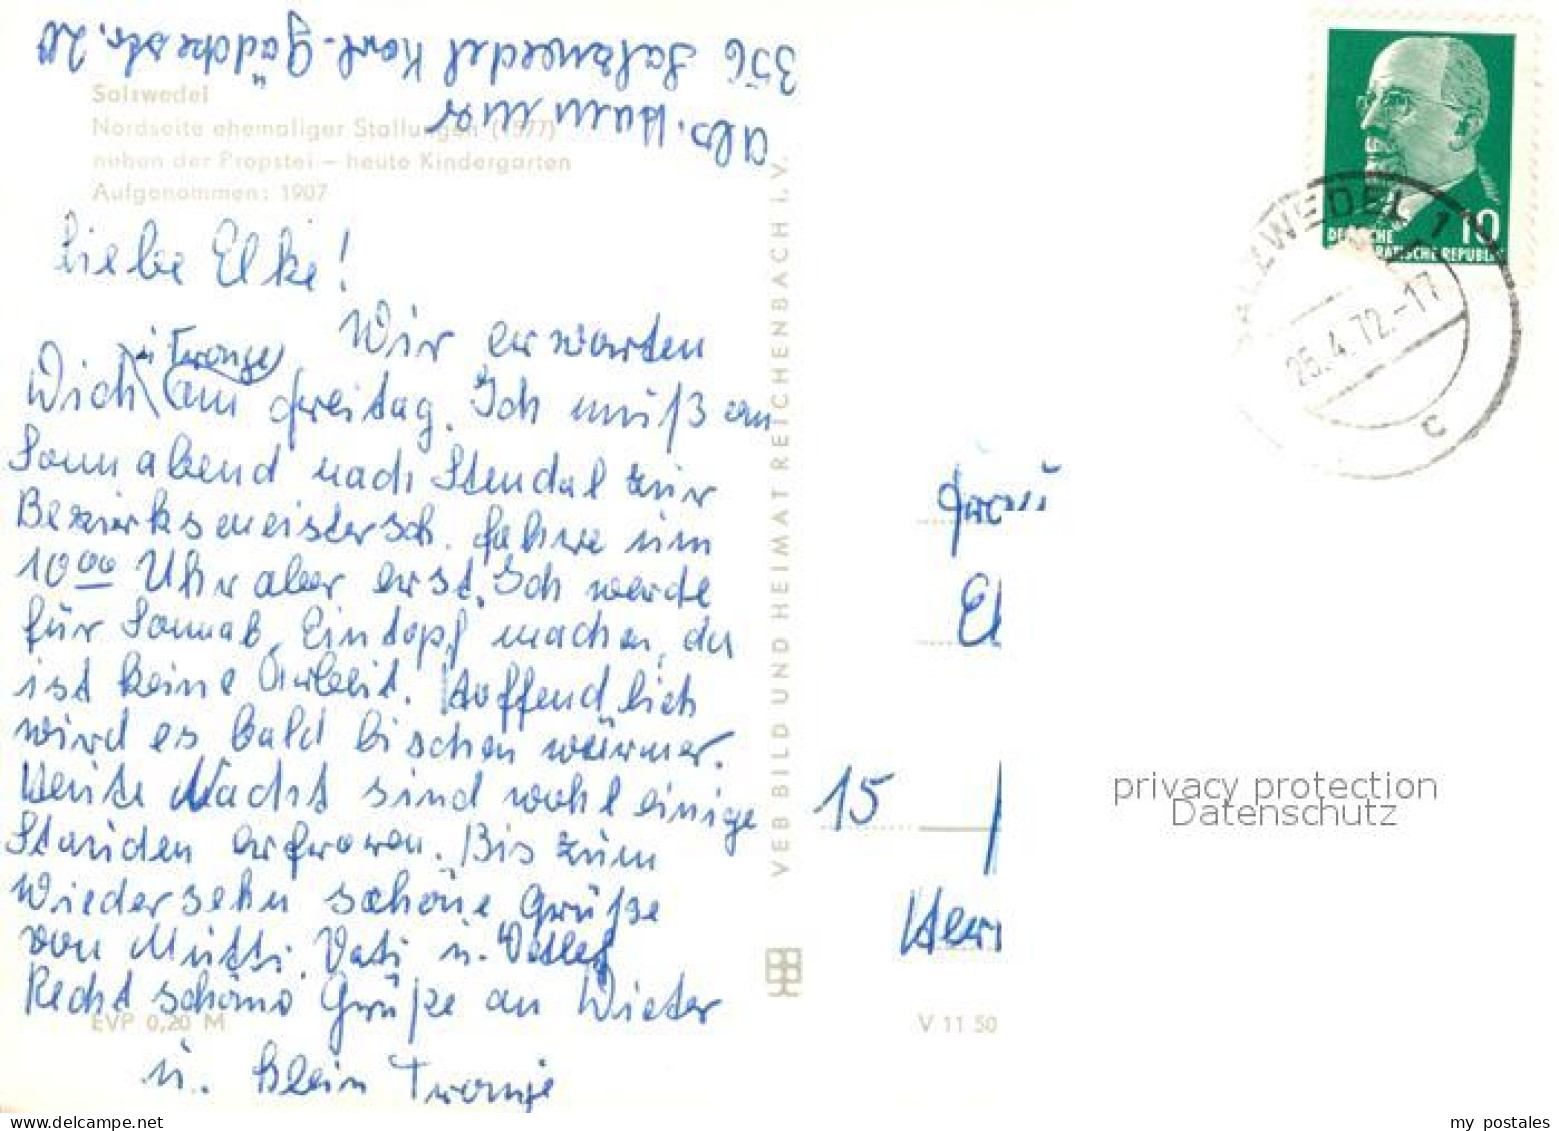 Abs. Hammer
356 Salzwedel Karl-Gädckestr. 20
Salzwedel
Nordseite ehemaliger Stallungen (1577)
neben der Propstei – heute Kindergarten
Aufgenommen: 1907
Liebe Elke!
Wir erwarten
Dich u. Tronje am Freitag. Ich muß am
Sonnabend nach Stendal zur
Bezirksmeistersch. fahre um
10 00 Uhr aber erst. Ich werde
für Sonnab. Eintopf machen, da
ist keine Arbeit. Hoffendlich
wird es bald bischen wärmer.
Heute Nacht sind wohl einige
Stauden erfroren. Bis zum
Wiedersehn schöne Grüße
von Mutti, Vati u. Detlef
Recht schöne Grüße an Dieter
u. klein Tronje
EVP 0,20 M
VEB BILD UND HEIMAT REICHENBACH i. V.
V 11 50
DEUTSCHE
RATISCHE REPUBLIK
10
SALZWEDEL 1
25.4.72.-17
c
Frau
El
15
Herr
privacy protection
Datenschutz
delcampe.net
my_postales